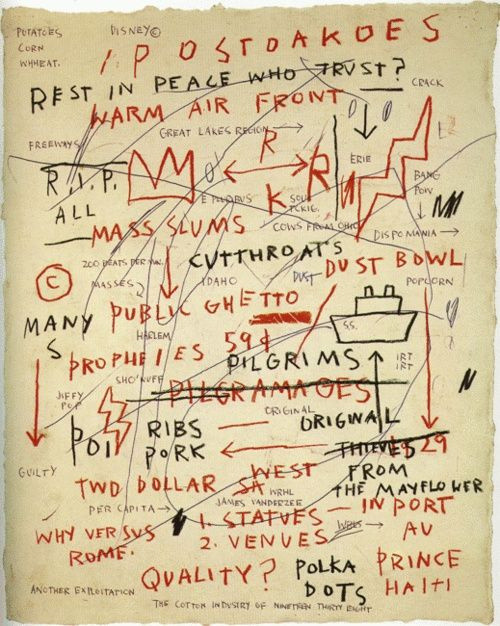 POTATOES
CORN
WHHEAT.
DISNEY©
IPOSTOAKOES
REST IN PEACE WHO TRUST?
CRACK
WARM AIR FRONT
GREAT LAKES REGION →
FREEWAYS
R
R
ERIE
R.I.P.
BANG
POW
E PLURIBUS
K
ALL
COWS FROM OHIO
MASS SLUMS
DISPOMANIA →
CUTTHROAT'S
200 BEATS PER MIN.
DUST BOWL
©
MASSES
IDAHO
DUST
POPCORN
PUBLIC GHETTO
MANY
S
HARLEM
59¢
SS.
PROPHEIES
PILGRIMS
IRT
IRT
SHO'NUFF
PILGRAMAGES
JIFFY
POP
ORIGINAL
ORIGINAL
POI
RIBS
PORK
THIEVES
29
GUILTY
WEST
FROM
TWO DOLLAR
SA
WRHL
THE MAYFLOWER
PER CAPITA →
JAMES VANDERZEE
1. STATUES — IN PORT
WHY VERSUS
ROME.
2. VENUES
AU
PRINCE
QUALITY?
POLKA
DOTS
HAITI
ANOTHER EXPLOITATION
THE COTTON INDUSTRY OF NINETEEN THIRTY EIGHT